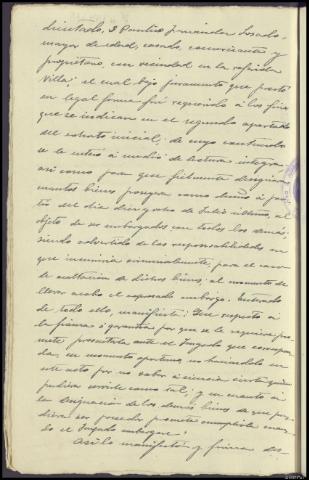 directorlo, D Pontico Fernandez Losada
mayor de edad, casado, comerciante y
propietario, con vecindad en la referida
Villa; el cual bajo juramento que prestó
en legal forma fué requerido á los fines
que se indican en el segundo apartado
del escrito inicial; de cuyo contenido
se le enteró á medio de lectura integra
así como para que fielmente designara
cuantos bienes posea como dueño á par-
tir del dia diez y ocho de Julio último, al
objeto de ser embargados con todos los demás;
siendo advertido de las responsabilidades en
que incurriria criminalmente, para el caso
de ocultacion de dichos bienes, al momento de
llevar acabo el expresado embargo. Enterado
de todo ello, manifiesta: Que respecto á
la fianza ó garantia por que se le requiere pro-
mete presentarla ante el Juzgado que correspon-
da, en momento oportuno, no haciéndolo en
este acto por no saber á ciencia cierta quien
pudiera servirle como tal; y en cuanto á
la designación de los demás bienes de que pu-
diera ser poseedor promete cumplirlo cuan-
do el Juzgado embargue.
Así lo manifestó y firma des-